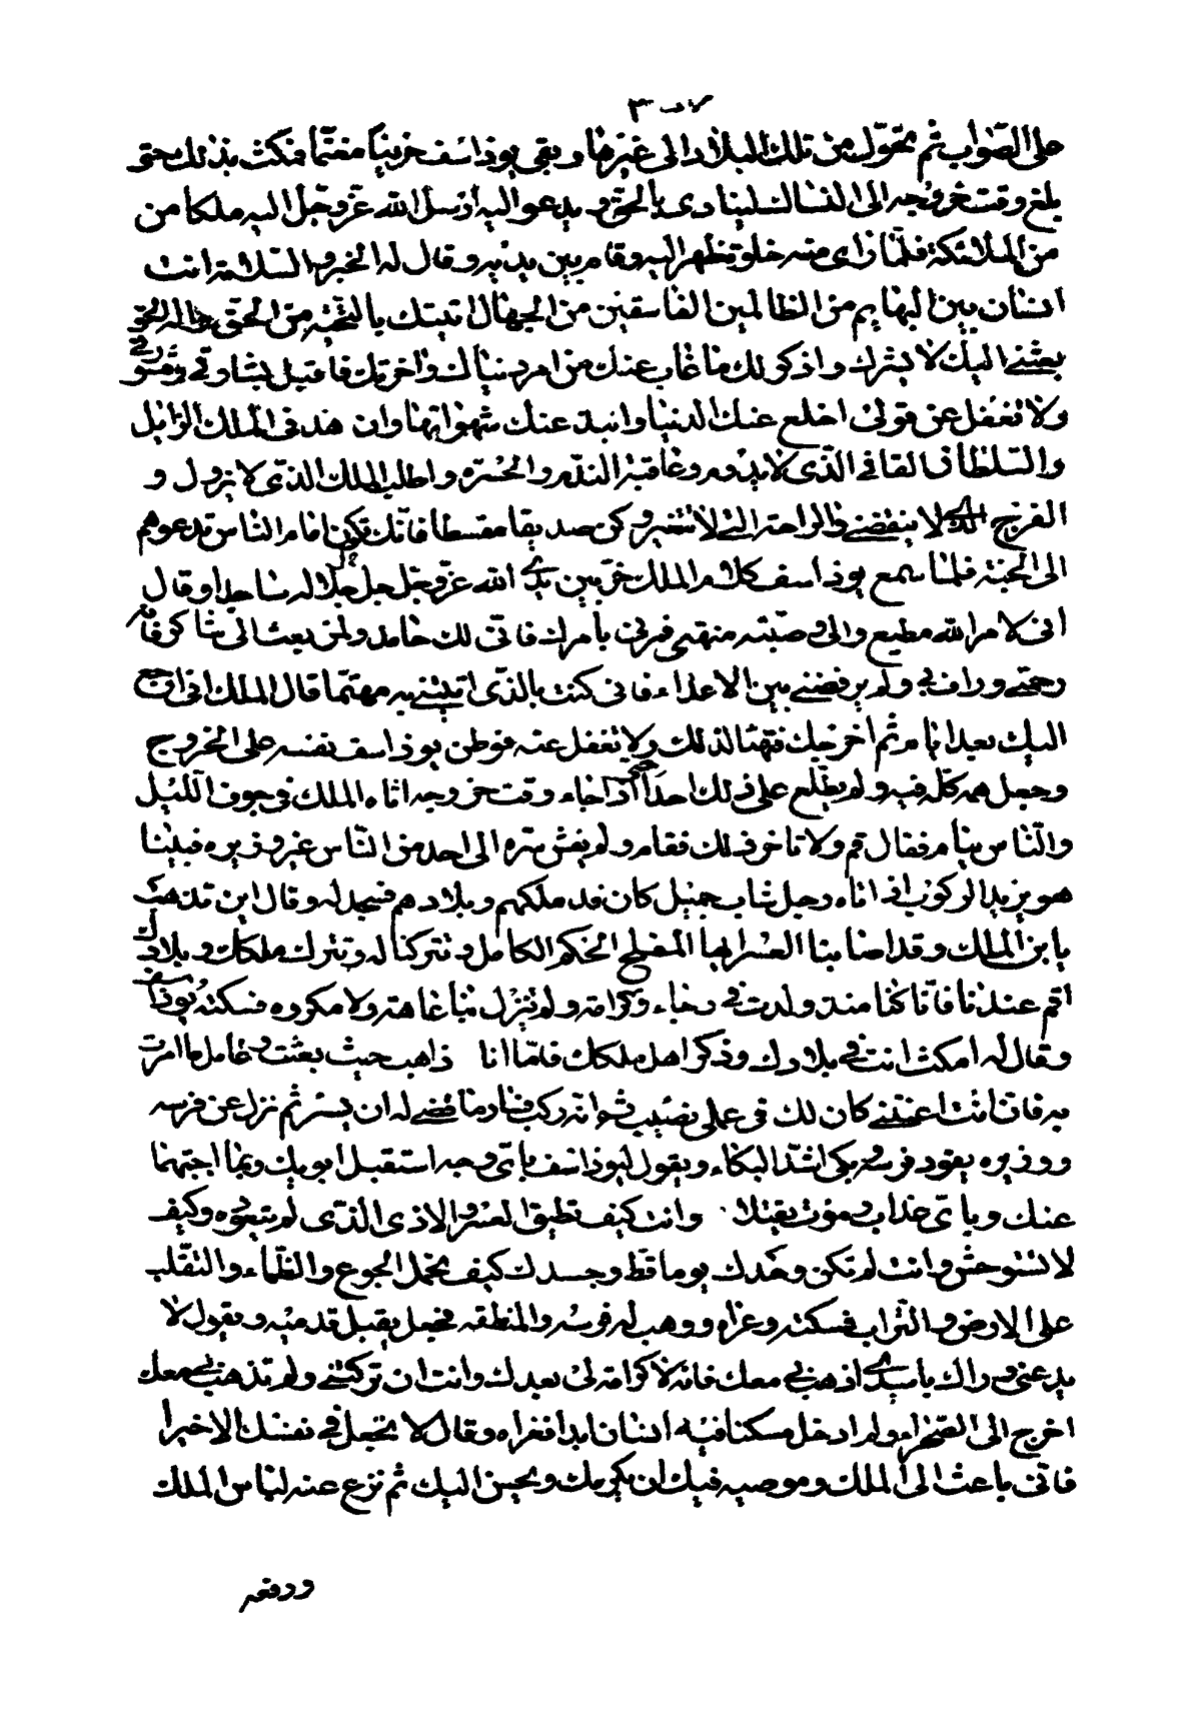 على الصواب ثم تحول من تلك البلاد الى غيرها وبقي يوذاسف حزينا مغتما فمكث بذلك حتى
بلغ وقت خروجه الى النساك لينادى بالحق ويدعو اليه ارسل الله عز وجل اليه ملكا من
من الملائكة فلما راى منه خلوة ظهر اليه وقام بين يديه وقال له الخير والسلامة انت
انسان بين البهايم من الظالمين الفاسقين من الجهال اتيتك بالتحية من الحق واله الخلق
بعثني اليك لا بشرك واذكر لك ما غاب عنك من امر دنياك واخرتك فاقبل بشارتي ومشورتي
ولا تغفل عن قولي اخلع عنك الدنيا وانبذ عنك شهواتها وازهد في الملك الزايل
والسلطان الفاني الذي لا يدوم وعاقبته الندم والحسرة واطلب الملك الذي لا يزول و
الفرح الذي لا ينقضي والراحة التي لا تتغير وكن صديقا مقسطا فانك تكون امام الناس تدعوهم
الى الجنة فلما سمع يوذاسف كلام الملك خر بين يدي الله عز وجل جل جلاله ساجدا وقال
اني لامر الله مطيع والى وصيته منتهى فمرني بامرك فاني لك حامد ولمن بعث الى شاكر فانه
رحمني ورأف بي ولم يرفضني بين الاعداء فاني كنت بالذي اتيتني به مهتما قال الملك اني ارجع
اليك بعد ايام ثم اخرجك فتهيا لذلك ولا تغفل عنه فوطن يوذاسف نفسه على الخروج
وجعل همه كله فيه ولم يطلع على ذلك احدا حتى اذا جاء وقت خروجه اتاه الملك في جوف الليل
والناس نيام فقال قم ولا تاخر ذلك فقام ولم يفش سره الى احد من الناس غير وزيره فبينا
هو يريد الركوب اذ اتاه رجل شاب جميل كان قد ملكهم وبلادهم فسجد له وقال اين تذهب
يا ابن الملك وقد اصابنا العسر ايها المصلح الحكيم الكامل وتتركنا له وتترك ملكك وبلادك
اقم عندنا فانا كنا منذ ولدت في رخاء وكرامة ولم تنزل بنا عاهة ولا مكروه فسكته يوذاسف
وقال له امكث انت في بلادك وذكر اهل ملكك فاما انا ذاهب حيث بعثت وعامل ما امرت
به فان انت اعنتني كان لك في عملي نصيب ثم انه ركب فسار ما قضى له ان يسير ثم نزل عن فرسه
ووزيره يقود فرسه ويبكي اشد البكاء ويقول ليوذاسف باي وجه استقبل ابويك وبما اجيبهما
عنك وباي عذاب وموت يقتلا وانت كيف تطيق العسر والاذى الذي لم تتعوده وكيف
لا تستوحش وانت لم تكن وحدك يوما قط وجسدك كيف تحمل الجوع والظماء والتقلب
على الارض والتراب فسكته وعزاه ووهب له فرسه والمنطقه فجعل يقبل قدميه ويقول لا
تدعني وراك يا سيدي اذهب بي معك فانه لا كرامة لي بعدك وانت ان تركتني ولم تذهب بي معك
اخرج الى الصحراء ولم ادخل مسكنا فيه انسان ابدا فعزاه وقال لا تجعل في نفسك الا خيرا
فاني باعث الى الملك وموصيه فيك ان يكرمك ويحسن اليك ثم نزع عنه لباس الملك
ودفعه